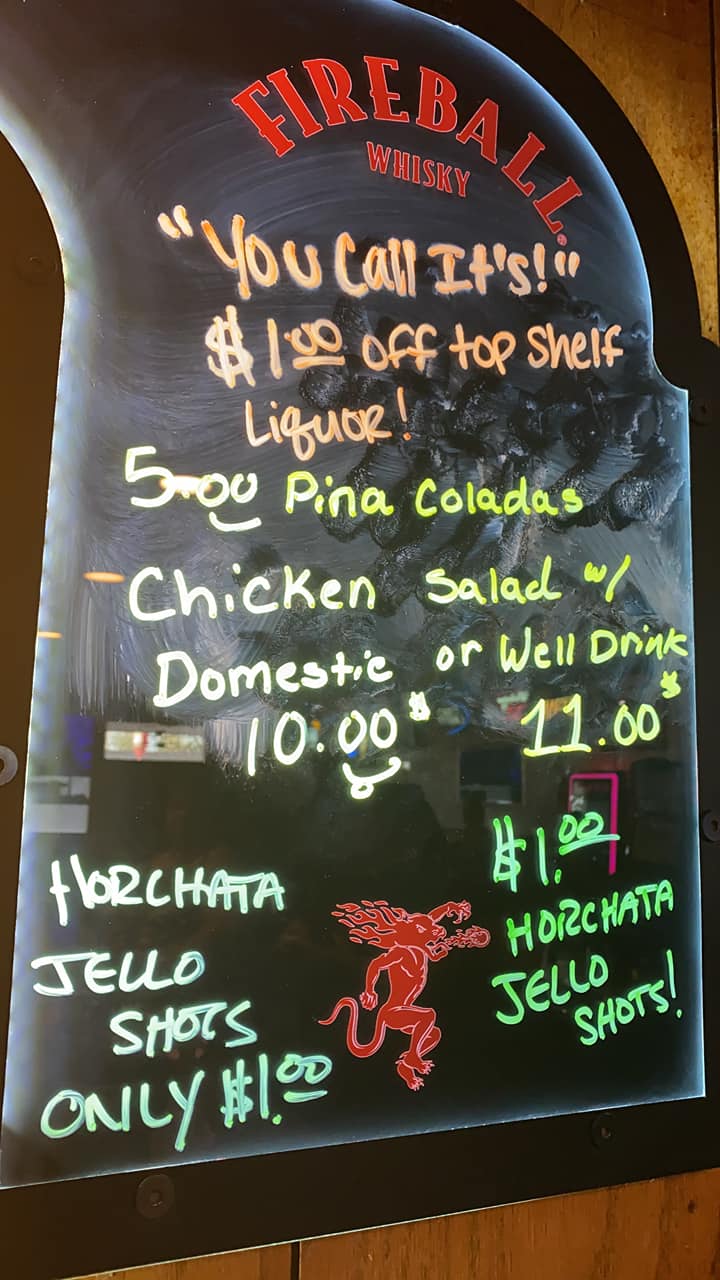 FIREBALL
WHISKY
"You Call It's!"
$1.00 off top shelf
Liquor!
5.00 Pina Coladas
Chicken Salad w/
Domestic or Well Drink
10.00$ 11.00$
HORCHATA
JELLO
SHOTS
ONLY $1.00
$1.00
HORCHATA
JELLO
SHOTS!